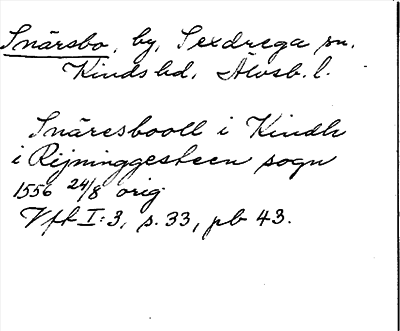 Snärsbo, by, Sexdrega sn,
Kinds hd, Älvsb. l.
Snäresbooll i Kindh
i Rijninggesteen sogn
1556 24/8 orig.
Vfk I:3, s. 33, pb 43.